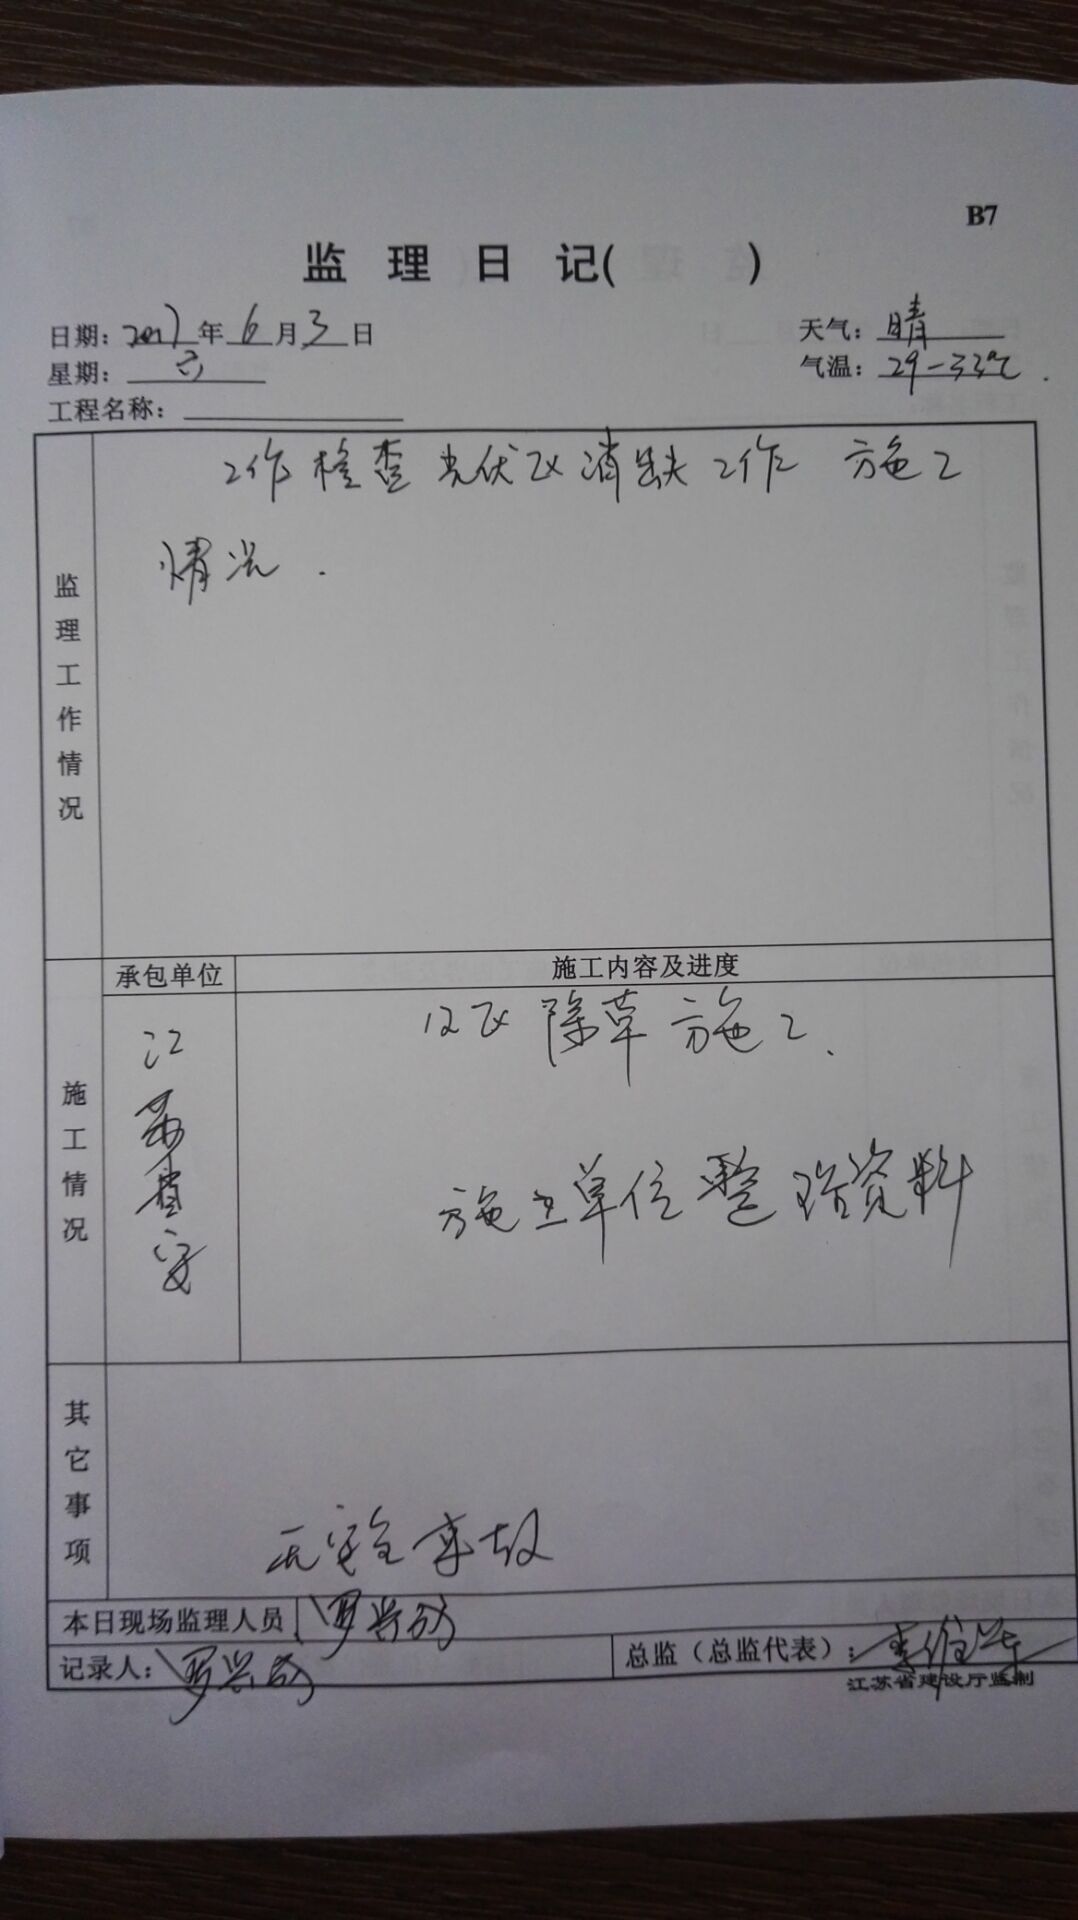 B7
监 理 日 记( )
日期: 2017 年 6 月 3 日
天气: 晴
星期: 六
气温: 29-33℃.
工程名称:
监理工作情况
工作检查光伏区消缺工作 施工
情况.
施工情况
承包单位
施工内容及进度
江苏省安
12区除草施工.
施工单位整理资料
其它事项
无安全事故
本日现场监理人员 罗兴成
记录人: 罗兴成
总监（总监代表）:
江苏省建设厅监制